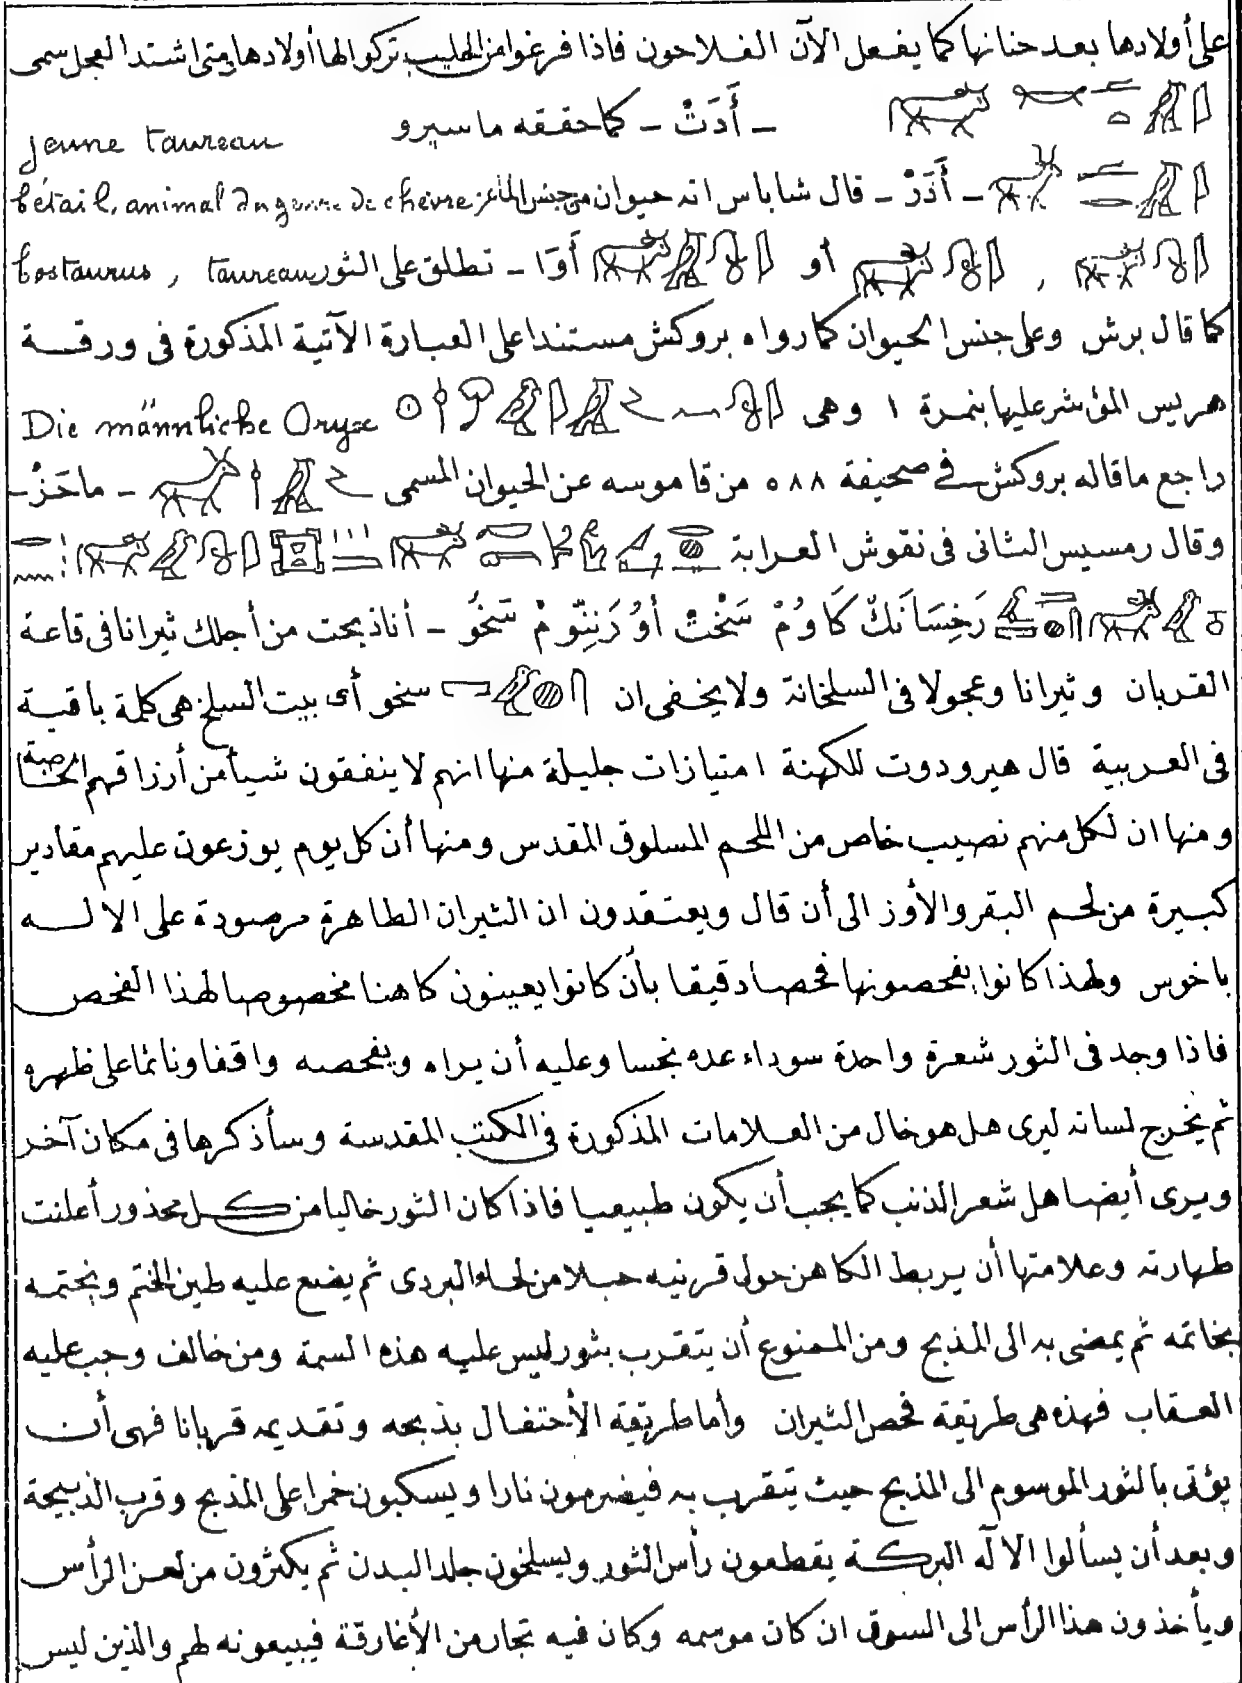 على أولادها بعد حنانها كما يفعل الآن الفلاحون فاذا فرغوا من الحليب تركوا لها أولادها ومتى اشتد العجل سمى
– أَدَتْ – كما حققه ماسيرو jeune taureau
– أَدَرْ – قال شاباس انه حيوان من جنس الماعز bétail, animal du genre de chèvre
أو أَوَا – تطلق على الثور bostaurus , taureau
كما قال برش وعلى جنس الحيوان كما رواه بروكش مستندا على العبارة الآتية المذكورة فى ورقة
هريس المؤشر عليها بنمرة ١ وهى Die männliche Oryx
راجع ما قاله بروكش فى صحيفة ٥٨٨ من قاموسه عن الحيوان المسمى – ماحَزْ –
وقال رمسيس الثانى فى نقوش العرابة
رَخِسَانَكْ كَاوُمْ سَخْتْ أوُ رَنِنّومْ سَخُو – أنا ذبحت من أجلك ثيرانا فى قاعة
القربان وثيرانا وعجولا فى السلخانة ولا يخفى ان سنحو أى بيت السلخ هى كلمة باقية
فى العربية قال هيرودوت للكهنة امتيازات جليلة منها انهم لا ينفقون شيأ من أرزاقهم الخاصة
ومنها ان لكل منهم نصيب خاص من اللحم المسلوق المقدس ومنها أن كل يوم يوزعون عليهم مقادير
كبيرة من لحم البقر والأوز الى أن قال ويعتقدون ان الثيران الطاهرة مرصودة على الاله
باخوس ولهذا كانوا يفحصونها فحصا دقيقا بأن كانوا يعينون كاهنا مخصوصا لهذا الفحص
فاذا وجد فى الثور شعرة واحدة سوداء عده نجسا وعليه أن يراه ويفحصه واقفا ونائما على ظهره
ثم يخرج لسانه ليرى هل هو خال من العلامات المذكورة فى الكتب المقدسة وسأذكرها فى مكان آخر
ويرى أيضا هل شعر الذنب كما يجب أن يكون طبيعيا فاذا كان الثور خاليا من كل محذور أعلنت
طهارته وعلامتها أن يربط الكاهن حول قرنيه حبلا من لحاء البردى ثم يضع عليه طين الختم ويختمه
بخاتمه ثم يمضى به الى المذبح ومن الممنوع أن يتقرب بثور ليس عليه هذه السمة ومن خالف وجب عليه
العقاب فهذه هى طريقة فحص الثيران وأما طريقة الأحتفال بذبحه وتقديمه قربانا فهى أن
يؤتى بالثور الموسوم الى المذبح حيث يتقرب به فيضرمون نارا ويسكبون خمرا على المذبح وقرب الذبيحة
وبعد أن يسألوا الآله البركة يقطعون رأس الثور ويسلخون جلد البدن ثم يكثرون من لعن الرأس
ويأخذون هذا الرأس الى السوق ان كان موسمه وكان فيه تجار من الأغارقة فيبيعونه لهم والذين ليس